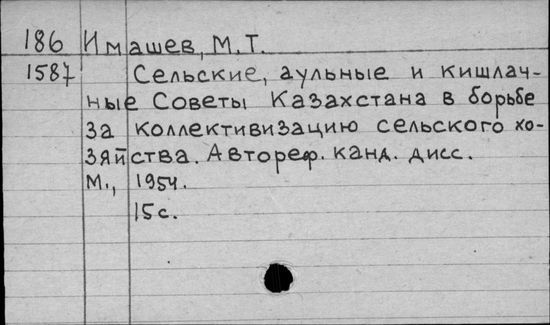 186 Имашев, М.Т.
1587 Сельские, аульные и кишлач-
ные Советы Казахстана в борьбе
за коллективизацию сельского хо-
зяйства. Автореф. канд. дисс.
М., 1954.
15с.